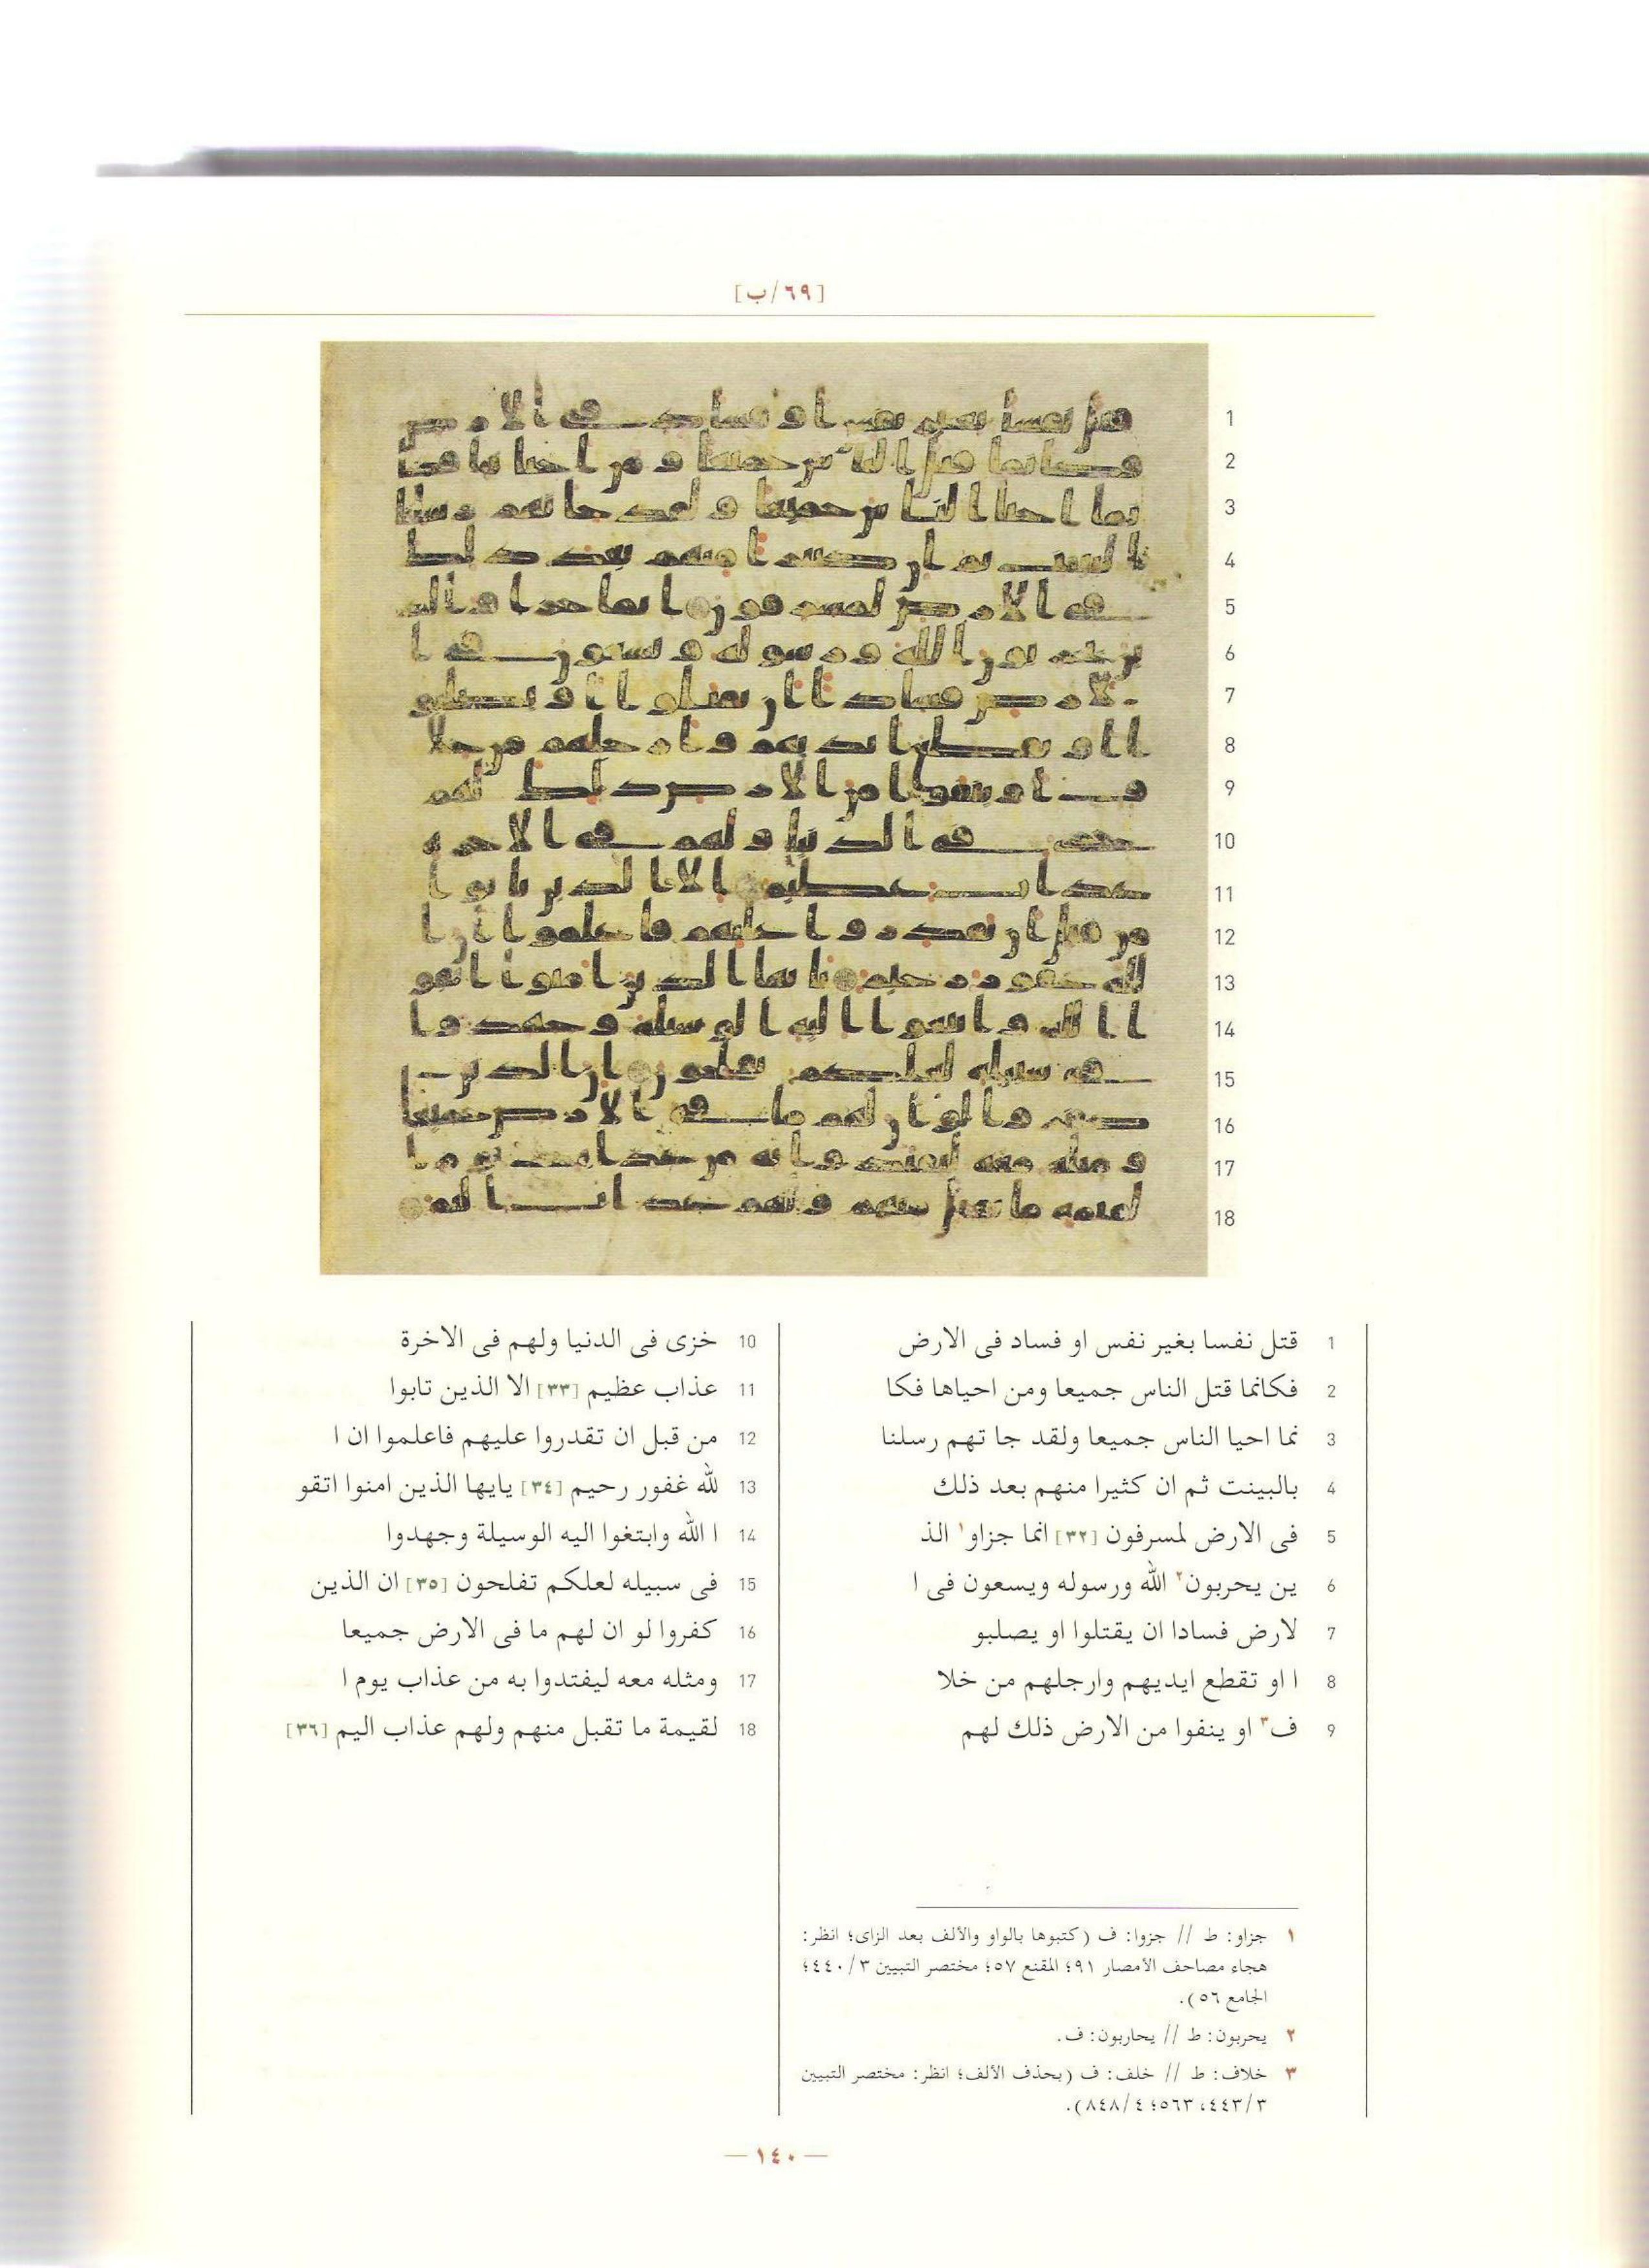 [٦٩/ب]
1 قتل نفسا بغير نفس او فساد فى الارض
2 فكانما قتل الناس جميعا ومن احياها فكا
3 نما احيا الناس جميعا ولقد جا تهم رسلنا
4 بالبينت ثم ان كثيرا منهم بعد ذلك
5 فى الارض لمسرفون [٣٢] انما جزاو١ الذ
6 ين يحربون٢ الله ورسوله ويسعون فى ا
7 لارض فسادا ان يقتلوا او يصلبو
8 ا او تقطع ايديهم وارجلهم من خلا
9 ف٣ او ينفوا من الارض ذلك لهم
10 خزى فى الدنيا ولهم فى الاخرة
11 عذاب عظيم [٣٣] الا الذين تابوا
12 من قبل ان تقدروا عليهم فاعلموا ان ا
13 لله غفور رحيم [٣٤] يايها الذين امنوا اتقو
14 ا الله وابتغوا اليه الوسيلة وجهدوا
15 فى سبيله لعلكم تفلحون [٣٥] ان الذين
16 كفروا لو ان لهم ما فى الارض جميعا
17 ومثله معه ليفتدوا به من عذاب يوم ا
18 لقيمة ما تقبل منهم ولهم عذاب اليم [٣٦]
١ جزاو: ط // جزوا: ف (كتبوها بالواو والألف بعد الزاى؛ انظر:
هجاء مصاحف الأمصار ٩١؛ المقنع ٥٧؛ مختصر التبيين ٣/٤٤٠؛
الجامع ٥٦).
٢ يحربون: ط // يحاربون: ف.
٣ خلاف: ط // خلف: ف (بحذف الألف؛ انظر: مختصر التبيين
٣/٤٤٣، ٥٦٣؛ ٤/٨٤٨).
— ١٤٠ —